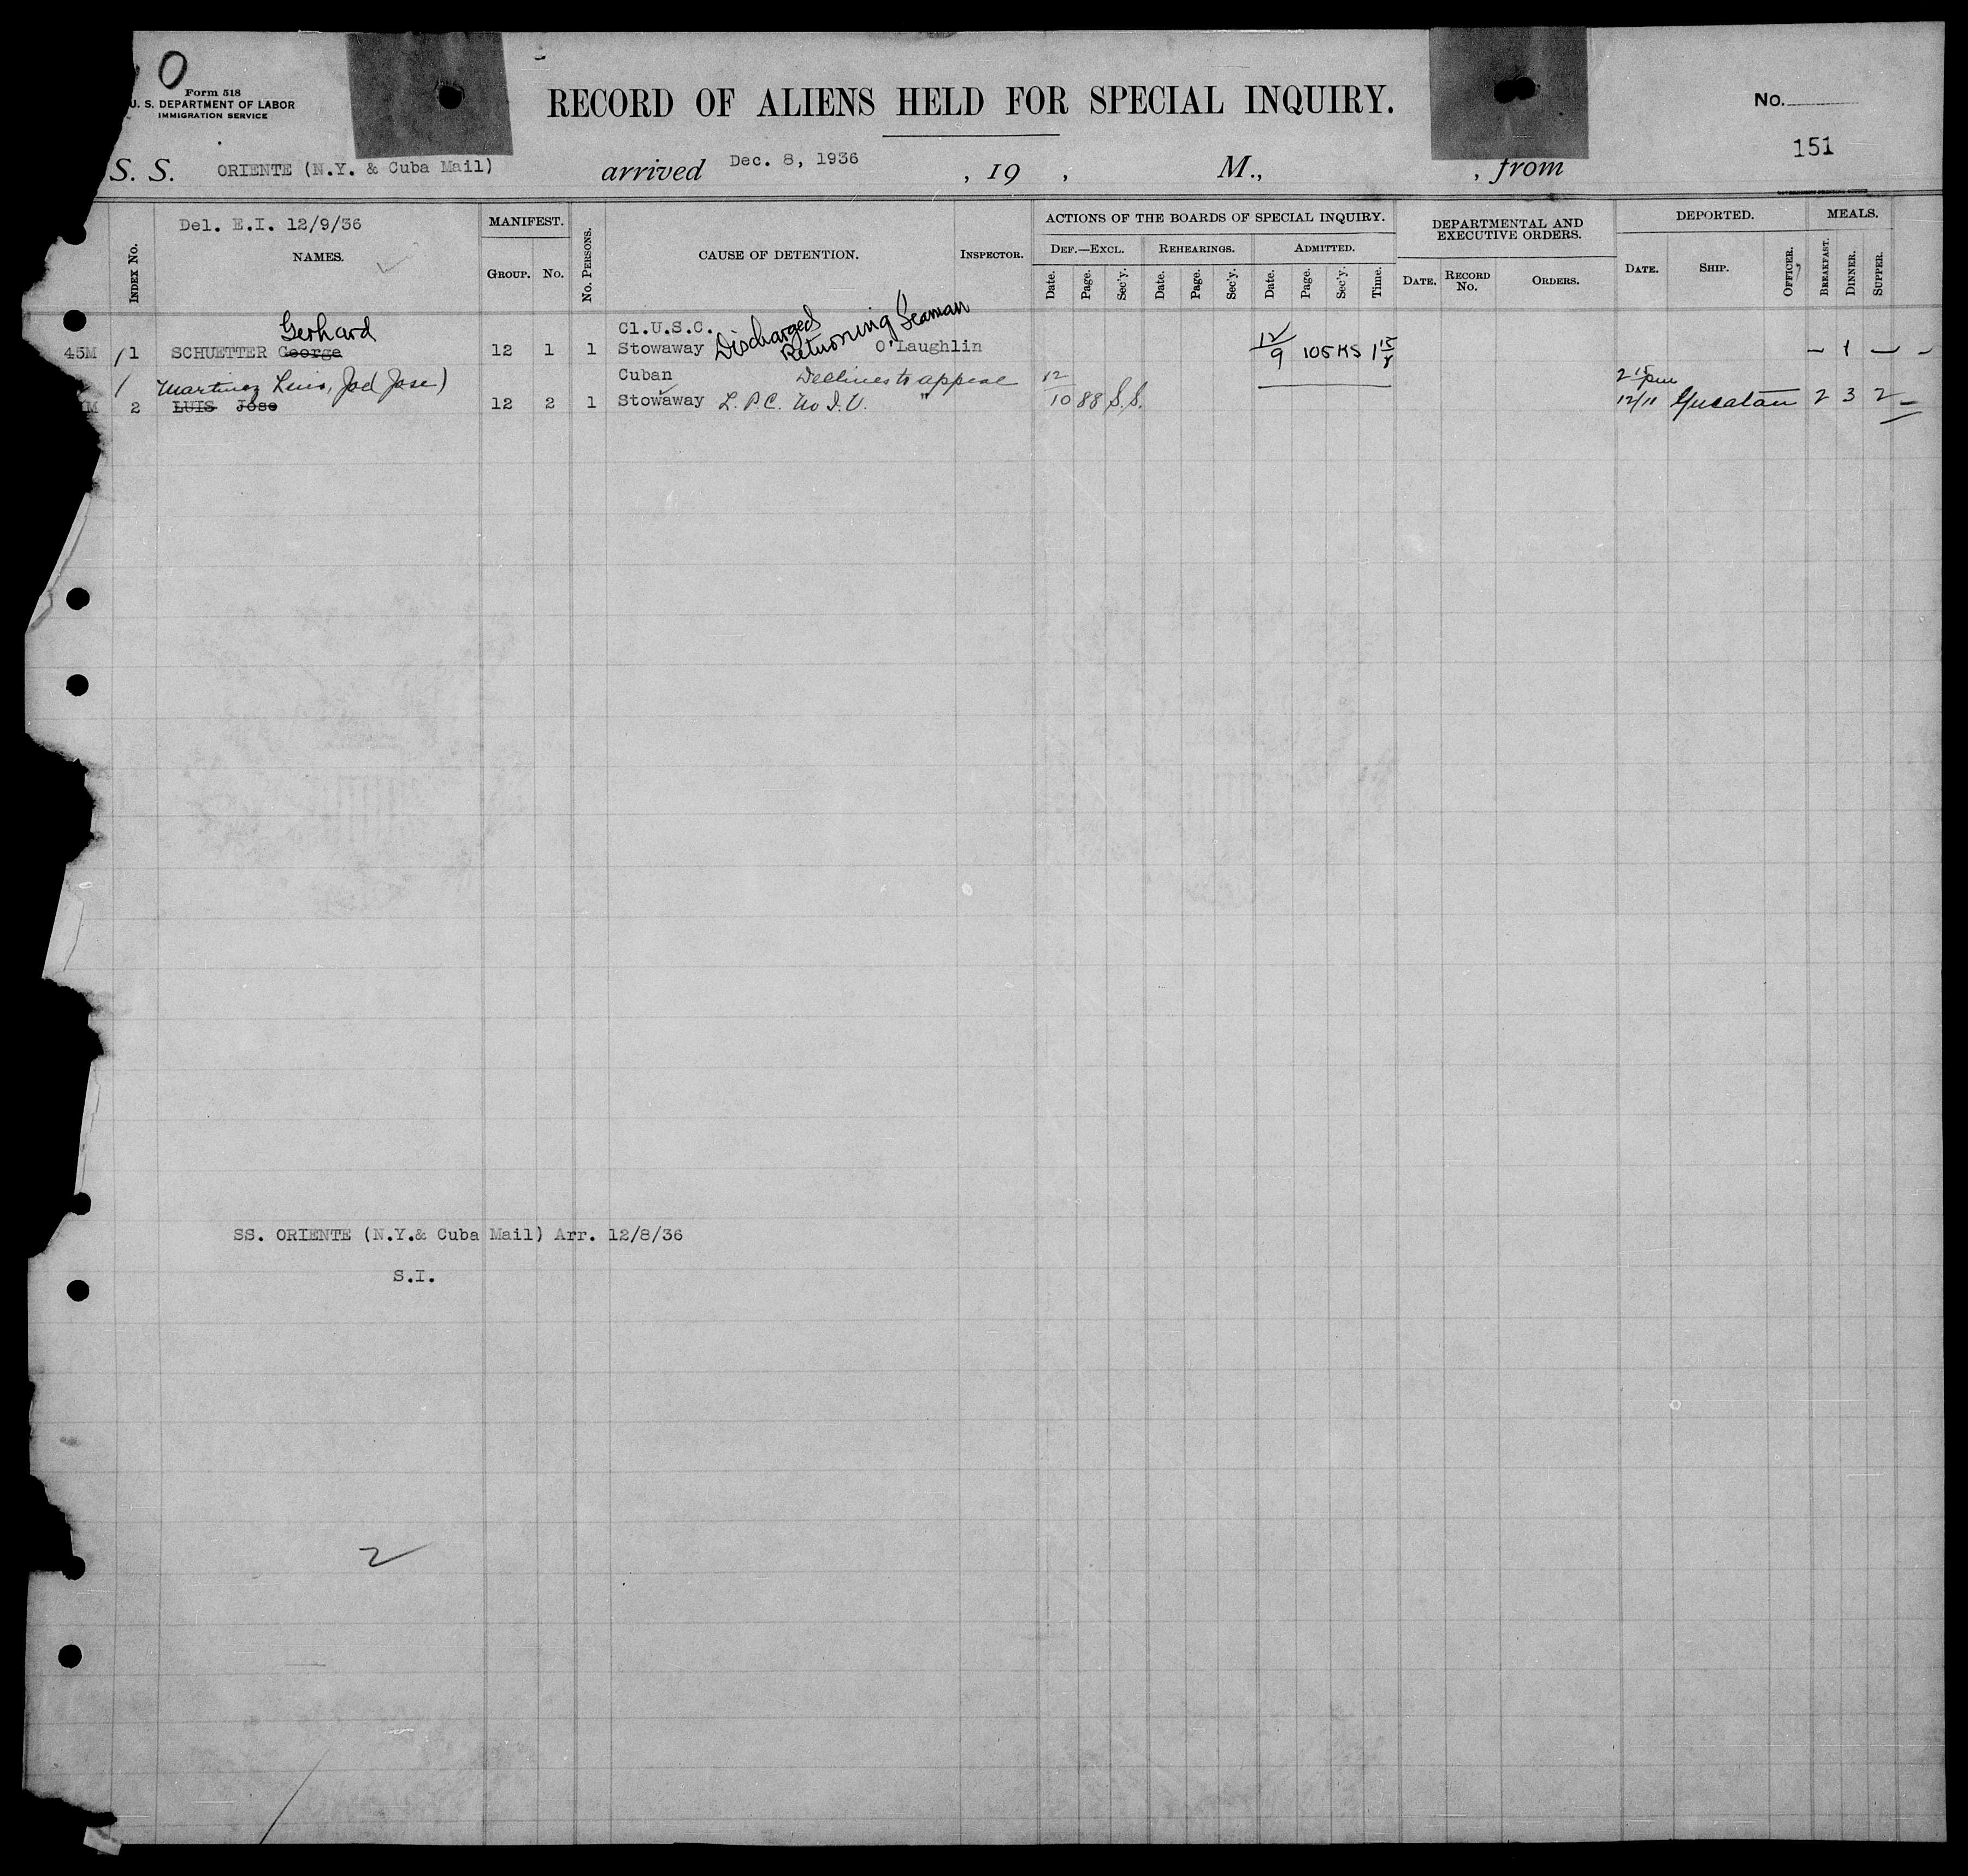 0
Form 518
U. S. DEPARTMENT OF LABOR
IMMIGRATION SERVICE
RECORD OF ALIENS HELD FOR SPECIAL INQUIRY.
No.
151
S. S. ORIENTE (N.Y. & Cuba Mail) arrived Dec. 8, 1936 , 19 , M., , from
Del. E.I. 12/9/36
INDEX No. NAMES. MANIFEST. GROUP. No. No. PERSONS. CAUSE OF DETENTION. INSPECTOR.
ACTIONS OF THE BOARDS OF SPECIAL INQUIRY.
DEF.—EXCL. Date. Page. Sec'y. REHEARINGS. Date. Page. Sec'y. ADMITTED. Date. Page. Sec'y. Time.
DEPARTMENTAL AND EXECUTIVE ORDERS. DATE. RECORD No. ORDERS.
DEPORTED. DATE. SHIP. OFFICER. MEALS. BREAKFAST. DINNER. SUPPER.
Gerhard Cl.U.S.C. Discharged Returning Seaman
45M / 1 SCHUETTER George 12 1 1 Stowaway O'Laughlin 12/9 105 KS 1 15 — 1 — -
/ Martinez Luis, José Jose) Cuban Declines to appeal 12 2 15 pm
M 2 LUIS Jose 12 2 1 Stowaway L.P.C. No I.V. " 10 88 S.S. 12/11 Yucatan 2 3 2 —
SS. ORIENTE (N.Y.& Cuba Mail) Arr. 12/8/36
S.I.
2